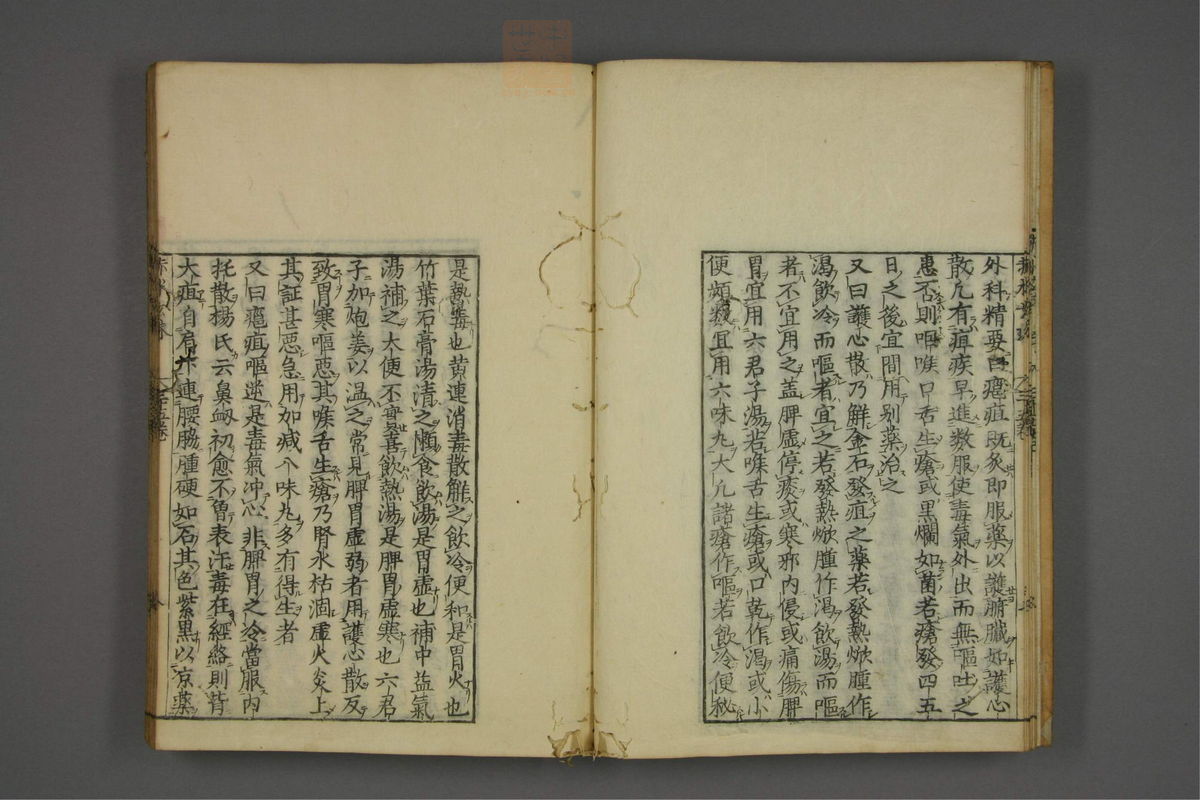 外科精要曰瘡疽既灸即服藥以護腑臟如護心
散凡有疽疾早進数服使毒氣外出而無嘔吐之
患否則嘔喉口舌生瘡或黒爛如菌若瘡發四五
日之後宜間用别藥治之
又曰護心散乃解金石發疽之藥若發熱焮腫作
渴飲冷而嘔者宜之若發熱焮腫作渴飲湯而嘔
者不宜用之盖脾虚停痰或寒邪内侵或痛傷脾
胃宜用六君子湯若喉舌生瘡或口乾作渴或小
便頻数宜用六味丸大凡諸瘡作嘔若飲冷便秘
是熱毒也黄連消毒散解之飲冷便和是胃火也
竹葉石膏湯清之懶食飲湯是胃虚也補中益氣
湯補之大便不實喜飲熱湯是脾胃虚寒也六君
子加炮姜以温之常見脾胃虚弱者用護心散反
致胃寒嘔惡其喉舌生瘡乃腎水枯涸虚火炎上
其証甚惡急用加减八味丸多有得生者
又曰癰疽嘔逆是毒氣冲心非脾胃之冷當服内
托散楊氏云鼻衂初愈不曽表汗毒在經絡則背
大疽自肩下連腰脇腫硬如石其色紫黒以凉藥